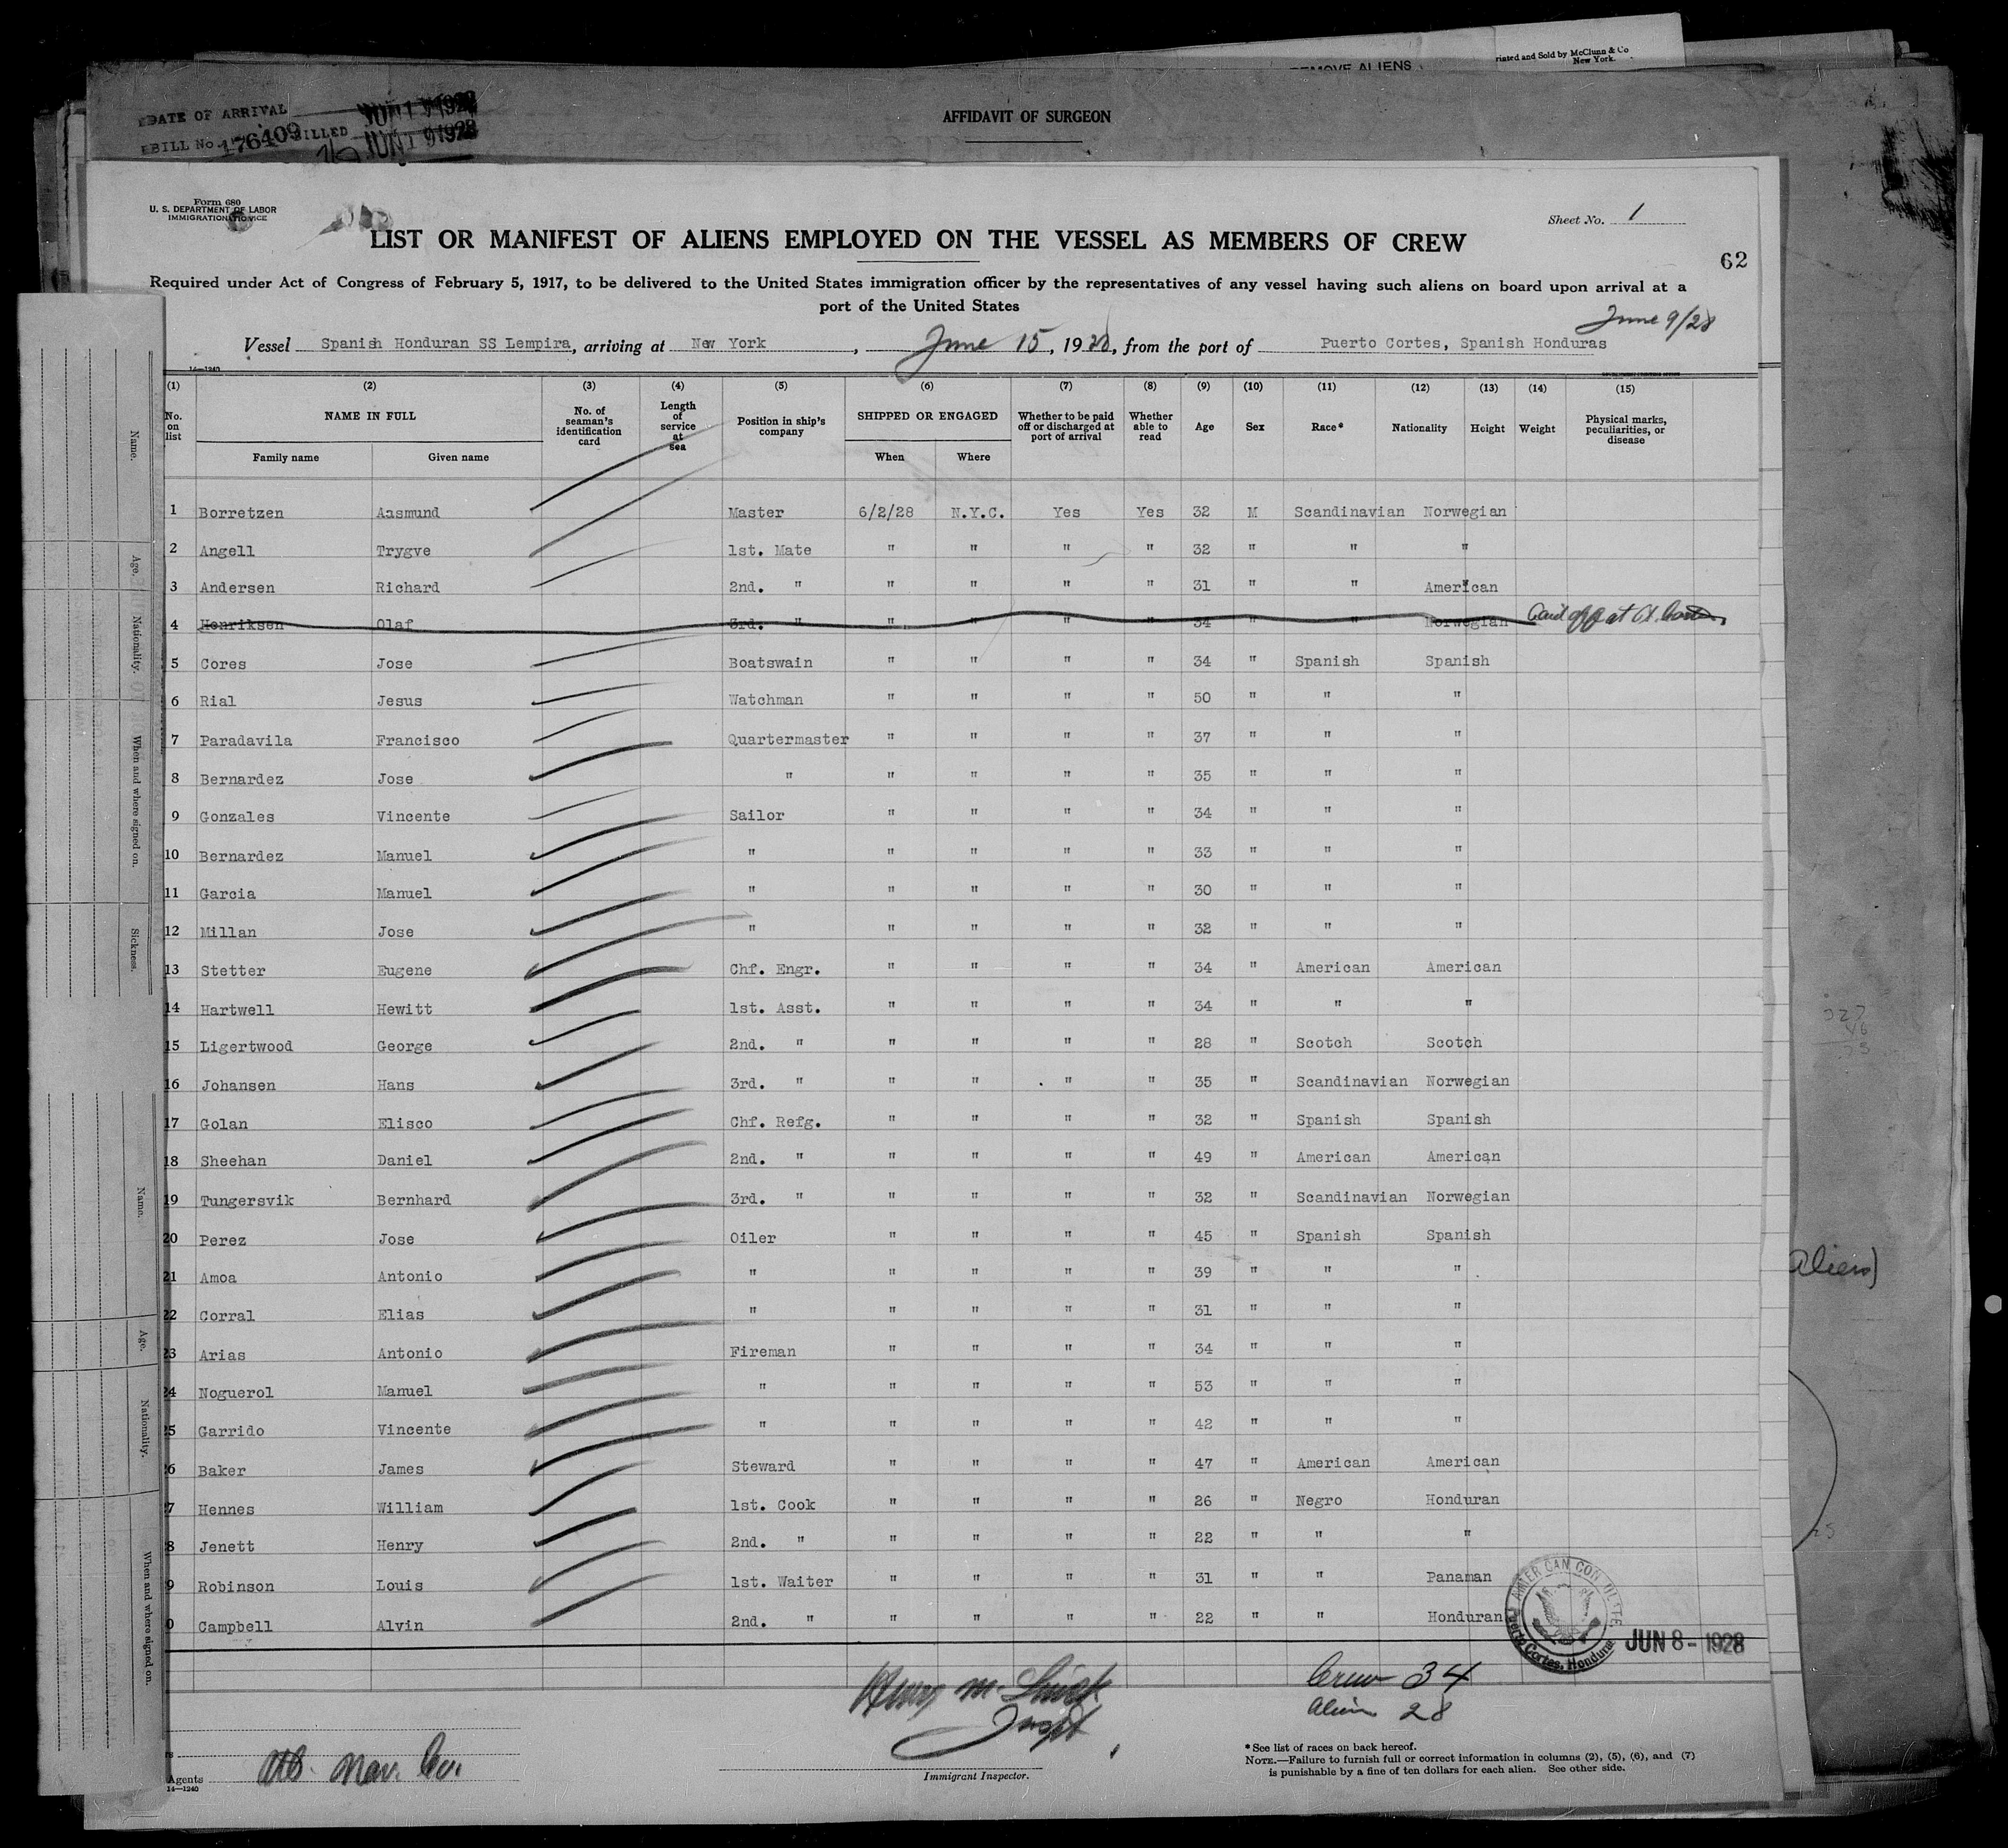 Printed and Sold by McClunn & Co
New York.
REMOVE ALIENS
DATE OF ARRIVAL JUN 1 1928
BILL No. 176409 BILLED JUN 19 1928
AFFIDAVIT OF SURGEON
Form 680
U. S. DEPARTMENT OF LABOR
IMMIGRATION SERVICE
Sheet No. 1
LIST OR MANIFEST OF ALIENS EMPLOYED ON THE VESSEL AS MEMBERS OF CREW
62
Required under Act of Congress of February 5, 1917, to be delivered to the United States immigration officer by the representatives of any vessel having such aliens on board upon arrival at a
port of the United States
June 9/28
Vessel Spanish Honduran SS Lempira, arriving at New York, June 15, 1928, from the port of Puerto Cortes, Spanish Honduras
14—1240
(1) (2) (3) (4) (5) (6) (7) (8) (9) (10) (11) (12) (13) (14) (15)
No. on list NAME IN FULL No. of seaman's identification card Length of service at sea Position in ship's company SHIPPED OR ENGAGED Whether to be paid off or discharged at port of arrival Whether able to read Age Sex Race* Nationality Height Weight Physical marks, peculiarities, or disease
Family name Given name When Where
1 Borretzen Aasmund Master 6/2/28 N.Y.C. Yes Yes 32 M Scandinavian Norwegian
2 Angell Trygve 1st. Mate " " " " 32 " " "
3 Andersen Richard 2nd. " " " " " 31 " " American
4 Henriksen Olaf 3rd. " " " " " 34 " " Norwegian Paid off at
5 Cores Jose Boatswain " " " " 34 " Spanish Spanish
6 Rial Jesus Watchman " " " " 50 " " "
7 Paradavila Francisco Quartermaster " " " " 37 " " "
8 Bernardez Jose " " " " " 35 " " "
9 Gonzales Vincente Sailor " " " " 34 " " "
10 Bernardez Manuel " " " " " 33 " " "
11 Garcia Manuel " " " " " 30 " " "
12 Millan Jose " " " " " 32 " " "
13 Stetter Eugene Chf. Engr. " " " " 34 " American American
14 Hartwell Hewitt 1st. Asst. " " " " 34 " " "
15 Ligertwood George 2nd. " " " " " 28 " Scotch Scotch
16 Johansen Hans 3rd. " " " " " 35 " Scandinavian Norwegian
17 Golan Elisco Chf. Refg. " " " " 32 " Spanish Spanish
18 Sheehan Daniel 2nd. " " " " " 49 " American American
19 Tungersvik Bernhard 3rd. " " " " " 32 " Scandinavian Norwegian
20 Perez Jose Oiler " " " " 45 " Spanish Spanish
21 Amoa Antonio " " " " " 39 " " "
22 Corral Elias " " " " " 31 " " "
23 Arias Antonio Fireman " " " " 34 " " "
24 Noguerol Manuel " " " " " 53 " " "
25 Garrido Vincente " " " " " 42 " " "
26 Baker James Steward " " " " 47 " American American
7 Hennes William 1st. Cook " " " " 26 " Negro Honduran
8 Jenett Henry 2nd. " " " " " 22 " " "
9 Robinson Louis 1st. Waiter " " " " 31 " " Panaman
0 Campbell Alvin 2nd. " " " " " 22 " " Honduran
AMERICAN CONSULATE
Puerto Cortes, Honduras
JUN 8 - 1928
Crew 34
Alien 28
Henry M.
Inspt
Immigrant Inspector.
*See list of races on back hereof.
NOTE.—Failure to furnish full or correct information in columns (2), (5), (6), and (7)
is punishable by a fine of ten dollars for each alien. See other side.
Agents Nav. Co.
14—1240
Name.
Age.
Nationality.
When and where signed on.
Sickness.
Name.
Age.
Nationality.
When and where signed on.
Aliens)